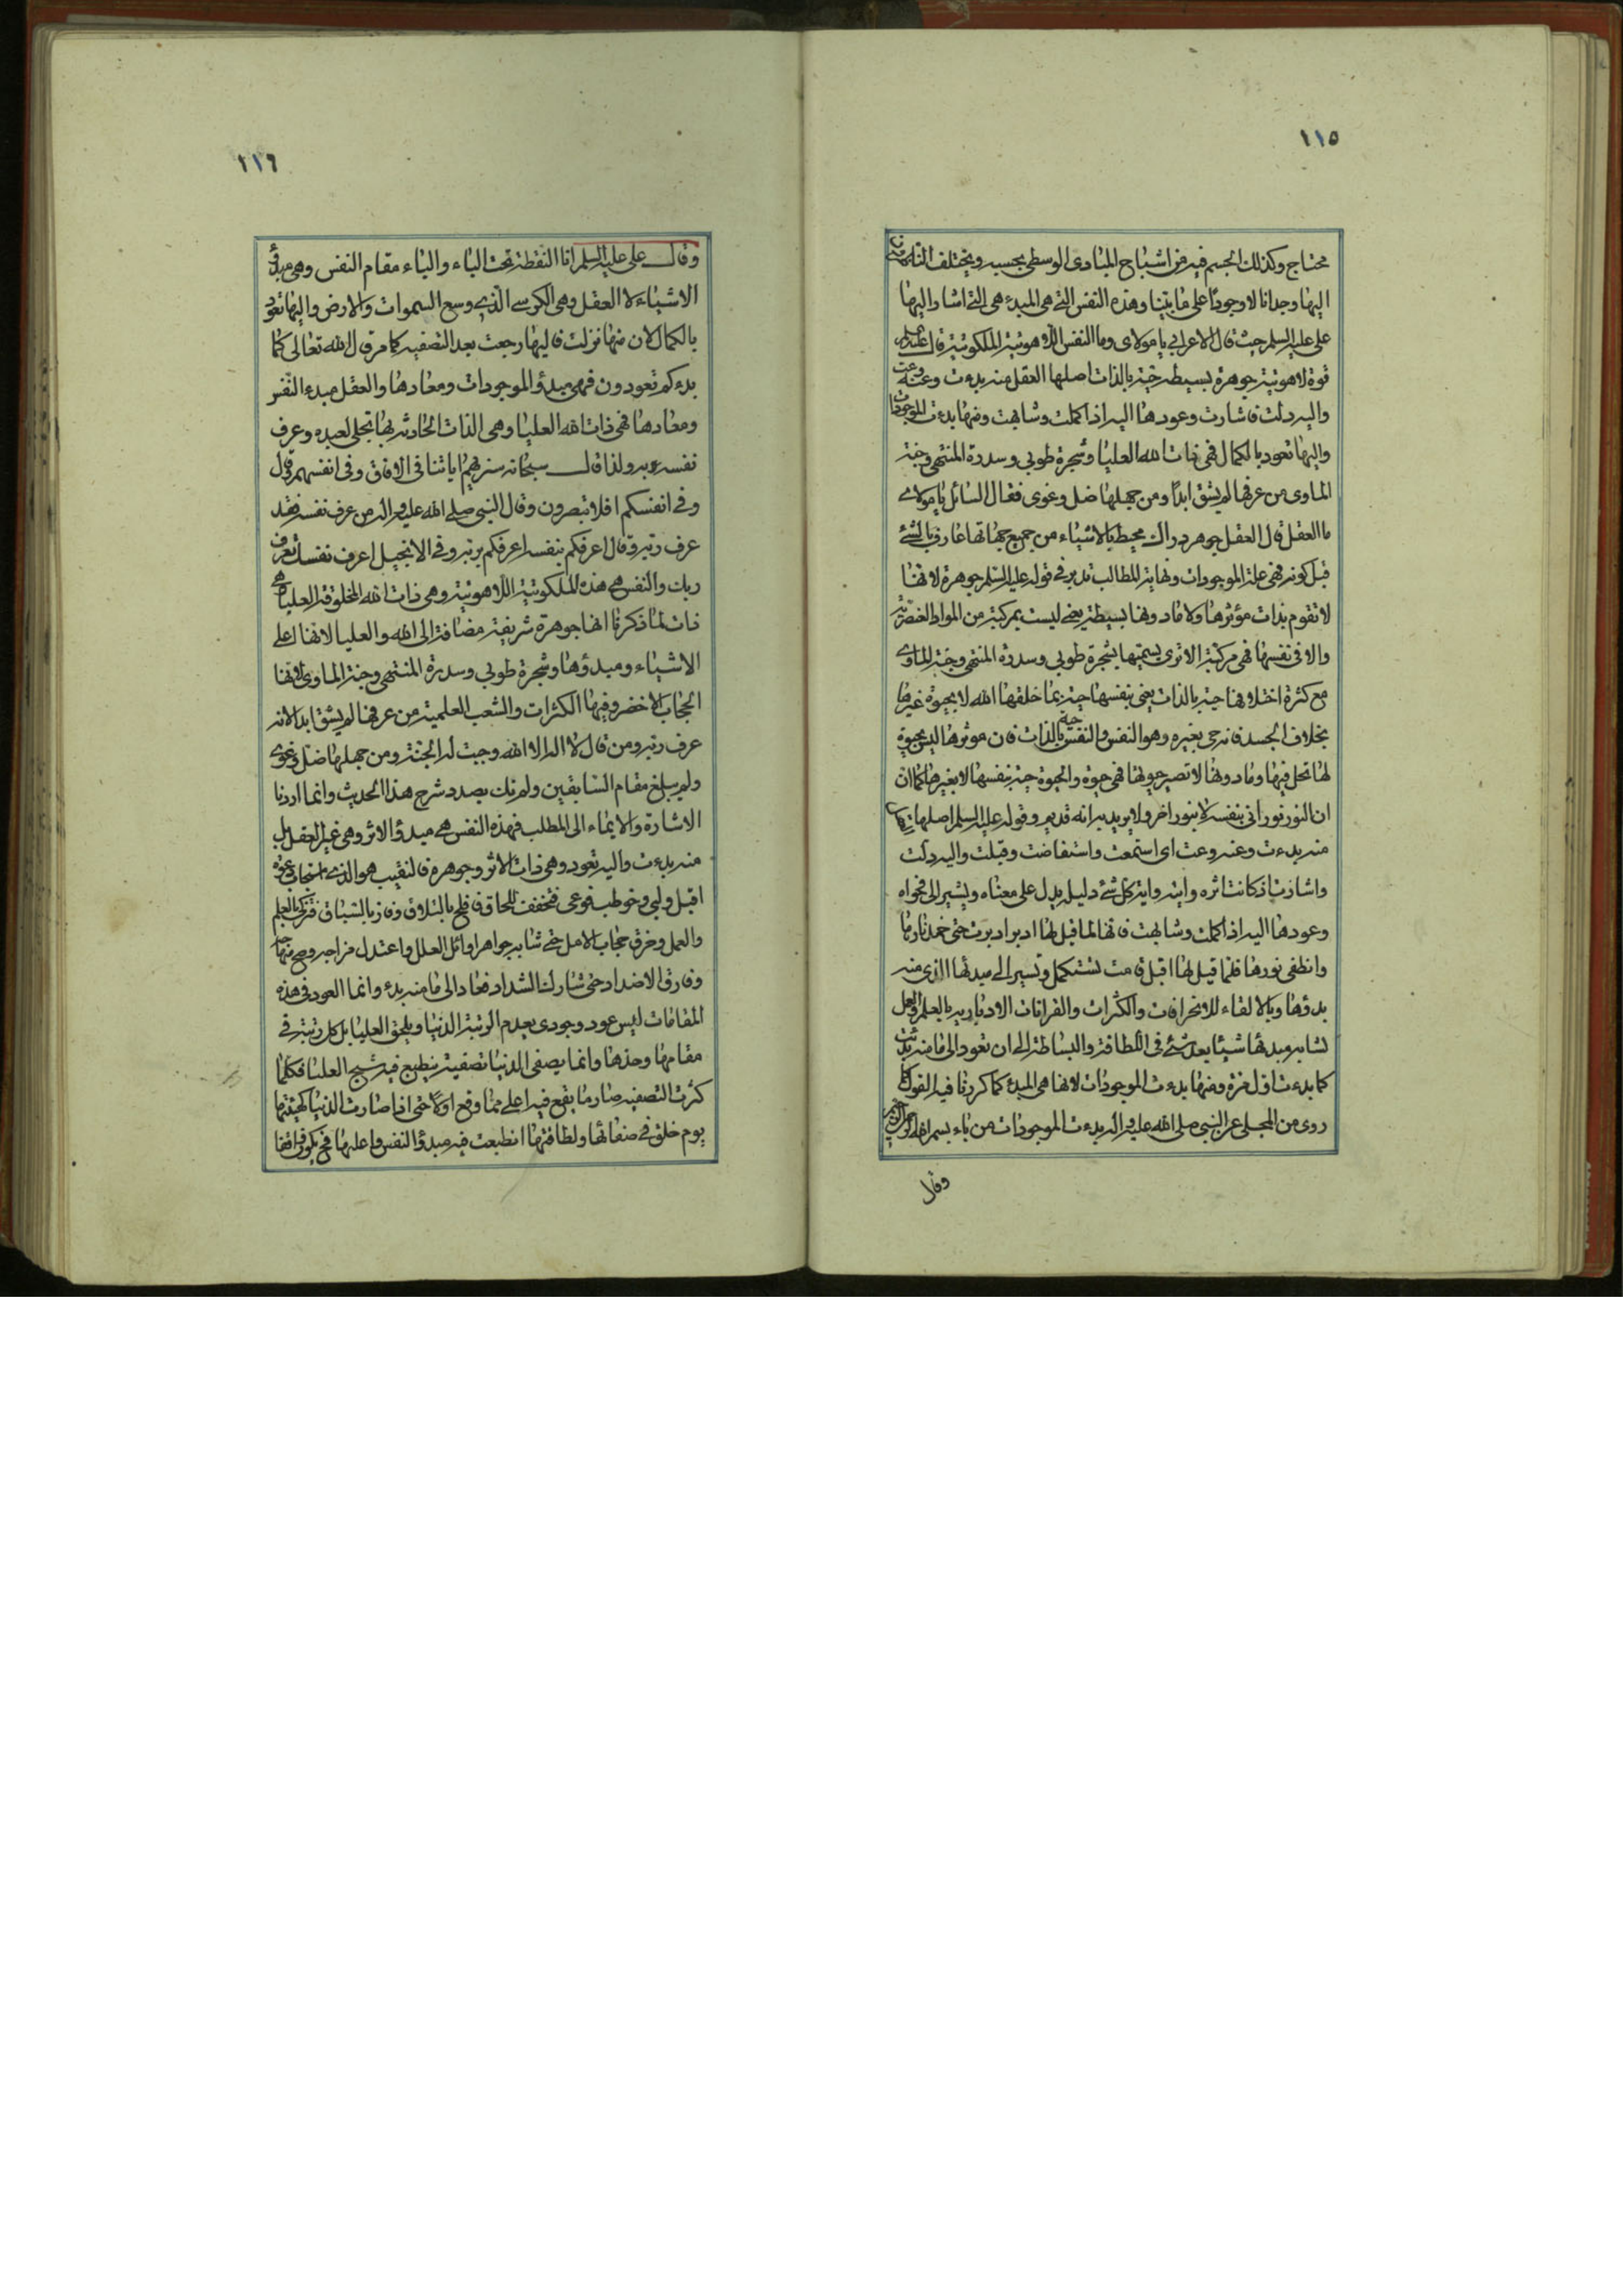 ١١٥
محتاج وكذلك الجسم فيه من اشباح المبادى الوسطى بحسبه ويختلف
اليها وجدانا لا وجودًا على ما بيّنا وهذه النفس التى هى المبدء هى التى اشار اليها
على عليه السلم حيث قال الاعرابى يا مولاى وما النفس اللاهوتية الملكوتية قال عليه السلم
قوة لاهوتية جوهرة بسيطه حيّة بالذات اصلها العقل منه بدءت وعنه وعت
واليه دلّت فاشارت وعودها اليه اذا كملت وشابهت ومنها بدءت الموجودات
واليها تعود بالكمال فهى ذات الله العليا وشجرة طوبى وسدرة المنتهى وجنة
الماوى من عرفها لم يشق ابدًا ومن جهلها ضل وغوى فقال السائل يا مولاى
ما العقل قال العقل جوهر دراك محيط بالاشياء من جميع جهاتها عارف بالشئ
قبل كونه فهى علة الموجودات ونهاية المطالب تدبر فى قوله عليه السلم جوهرة لانها
لا تقوم بذات مؤثرها ولا مادونها بسيطة يعنى ليست بمركبة من المواد العنصرية
والا فى نفسها فهى مركبة الا ترى يسميها شجرة طوبى وسدرة المنتهى وجنة الماوى
مع كثرة اختلافها حية بالذات يعنى بنفسها حية بما خلقها الله لا بحيوة غيرها
بخلاف الجسد فانه حى بغيره وهو النفس والنفس حية بالذات فان مؤثرها ليس بحيوة
لها تحل فيها ومادونها لا تصير حيوتها فهى حيوة والحيوة حية بنفسها لا بغيرها كما ان
ان النور نورانى بنفسه لا بنور اخر ولا يريد به انه قديم وقوله عليه السلم اصلها
منه بدءت وعنه وعت اى استمعت واستفاضت وقبلت واليه دلت
واشارت اذ كانت اثره وايته واية كل شئ دليله يدل على معناه ويشير الى فحواه
وعودها اليه اذا كملت وشابهت فانها لما قيل لها ادبر ادبرت حتى خمد نارها
وانطفى نورها فلما قيل لها اقبل قامت تستكمل وتسير الى مبدئها الذى منه
بدؤها وبالالقاء للانحرافات والكثرات والقرانات الادبارية بالعلم والعمل
تشابه مبدئها شيئا بعد شئ فى اللطافة والبساطة الى ان تعود الى ما منه بدئت
كما بدءت اول مرة ومنها بدءت الموجودات لانها هى المبدء كما كررنا فيه القول
روى من المجلى عن النبى صلى الله عليه واله بدءت الموجودات من باء بسم الله الرحمن الرحيم
وقال
١١٦
وقال على عليه السلم انا النقطة تحت الباء والباء مقام النفس وهى مبدؤ
الاشياء لا العقل وهى الكرسى الذى وسع السموات والارض واليها تعود
بالكمال لان منها نزلت فاليها رجعت بعد التصفيه كما مر قال الله تعالى كما
بدءكم تعودون فهى مبدؤ الموجودات ومعادها والعقل مبدء النفس
ومعادها فهى ذات الله العليا وهى الذات الحادثة بها تجلى لعبده وعرف
نفسه به ولذا قال سبحانه سنريهم اياتنا فى الافاق وفى انفسهم وقال
وفى انفسكم افلا تبصرون وقال النبى صلى الله عليه واله من عرف نفسه فقد
عرف ربه وقال اعرفكم بنفسه اعرفكم بربه وفى الانجيل اعرف نفسك تعرف
ربك والنفس هى هذه الملكوتية اللاهوتية وهى ذات الله المخلوقة العليا هى
ذات لما ذكرنا انها جوهرة شريفة مضافة الى الله والعليا لانها اعلى
الاشياء ومبدؤها وشجرة طوبى وسدرة المنتهى وجنة الماوى لانها
الحجاب الاخضر وفيها الكثرات والشعب العلمية من عرفها لم يشق ابدا لانه
عرف ربه ومن قال لا اله الا الله وجبت له الجنة ومن جهلها ضل وغوى
ولم يبلغ مقام السابقين ولم نك بصدد شرح هذا الحديث وانما اردنا
الاشارة والايماء الى المطلب فهذه النفس هى مبدؤ الاثر وهى غير العقل بل
منه بدءت واليه تعود وهى ذات الاثر وجوهره فالنقيب هو الذى
اقبل ولبى وخوطب فوعى فتخفف للحاق ففلح بالتلاق وفاز بالسباق فتزكى بالعلم
والعمل وخرق حجاب الامل حتى شابه جواهر اوائل العلل واعتدل مزاجه وصح منهاجه
وفارق الاضداد حتى شارك الشداد فعاد الى ما منه بدء وانما العود فى هذه
المقامات ليس عود وجودى يعدم الرتبة الدنيا ويلحق العليا بل كل رتبة فى
مقامها وحدها وانما يصفى الدنيا تصفية ينطبع فيه شبح العليا فكلما
كثرت التصفيه صار ما يقع فيه اعلى مما وقع اولا حتى اذا صارت الدنيا كهيئتها
يوم خلق فى صفائها ولطافتها انطبعت فيه مبدؤ النفس واعليها